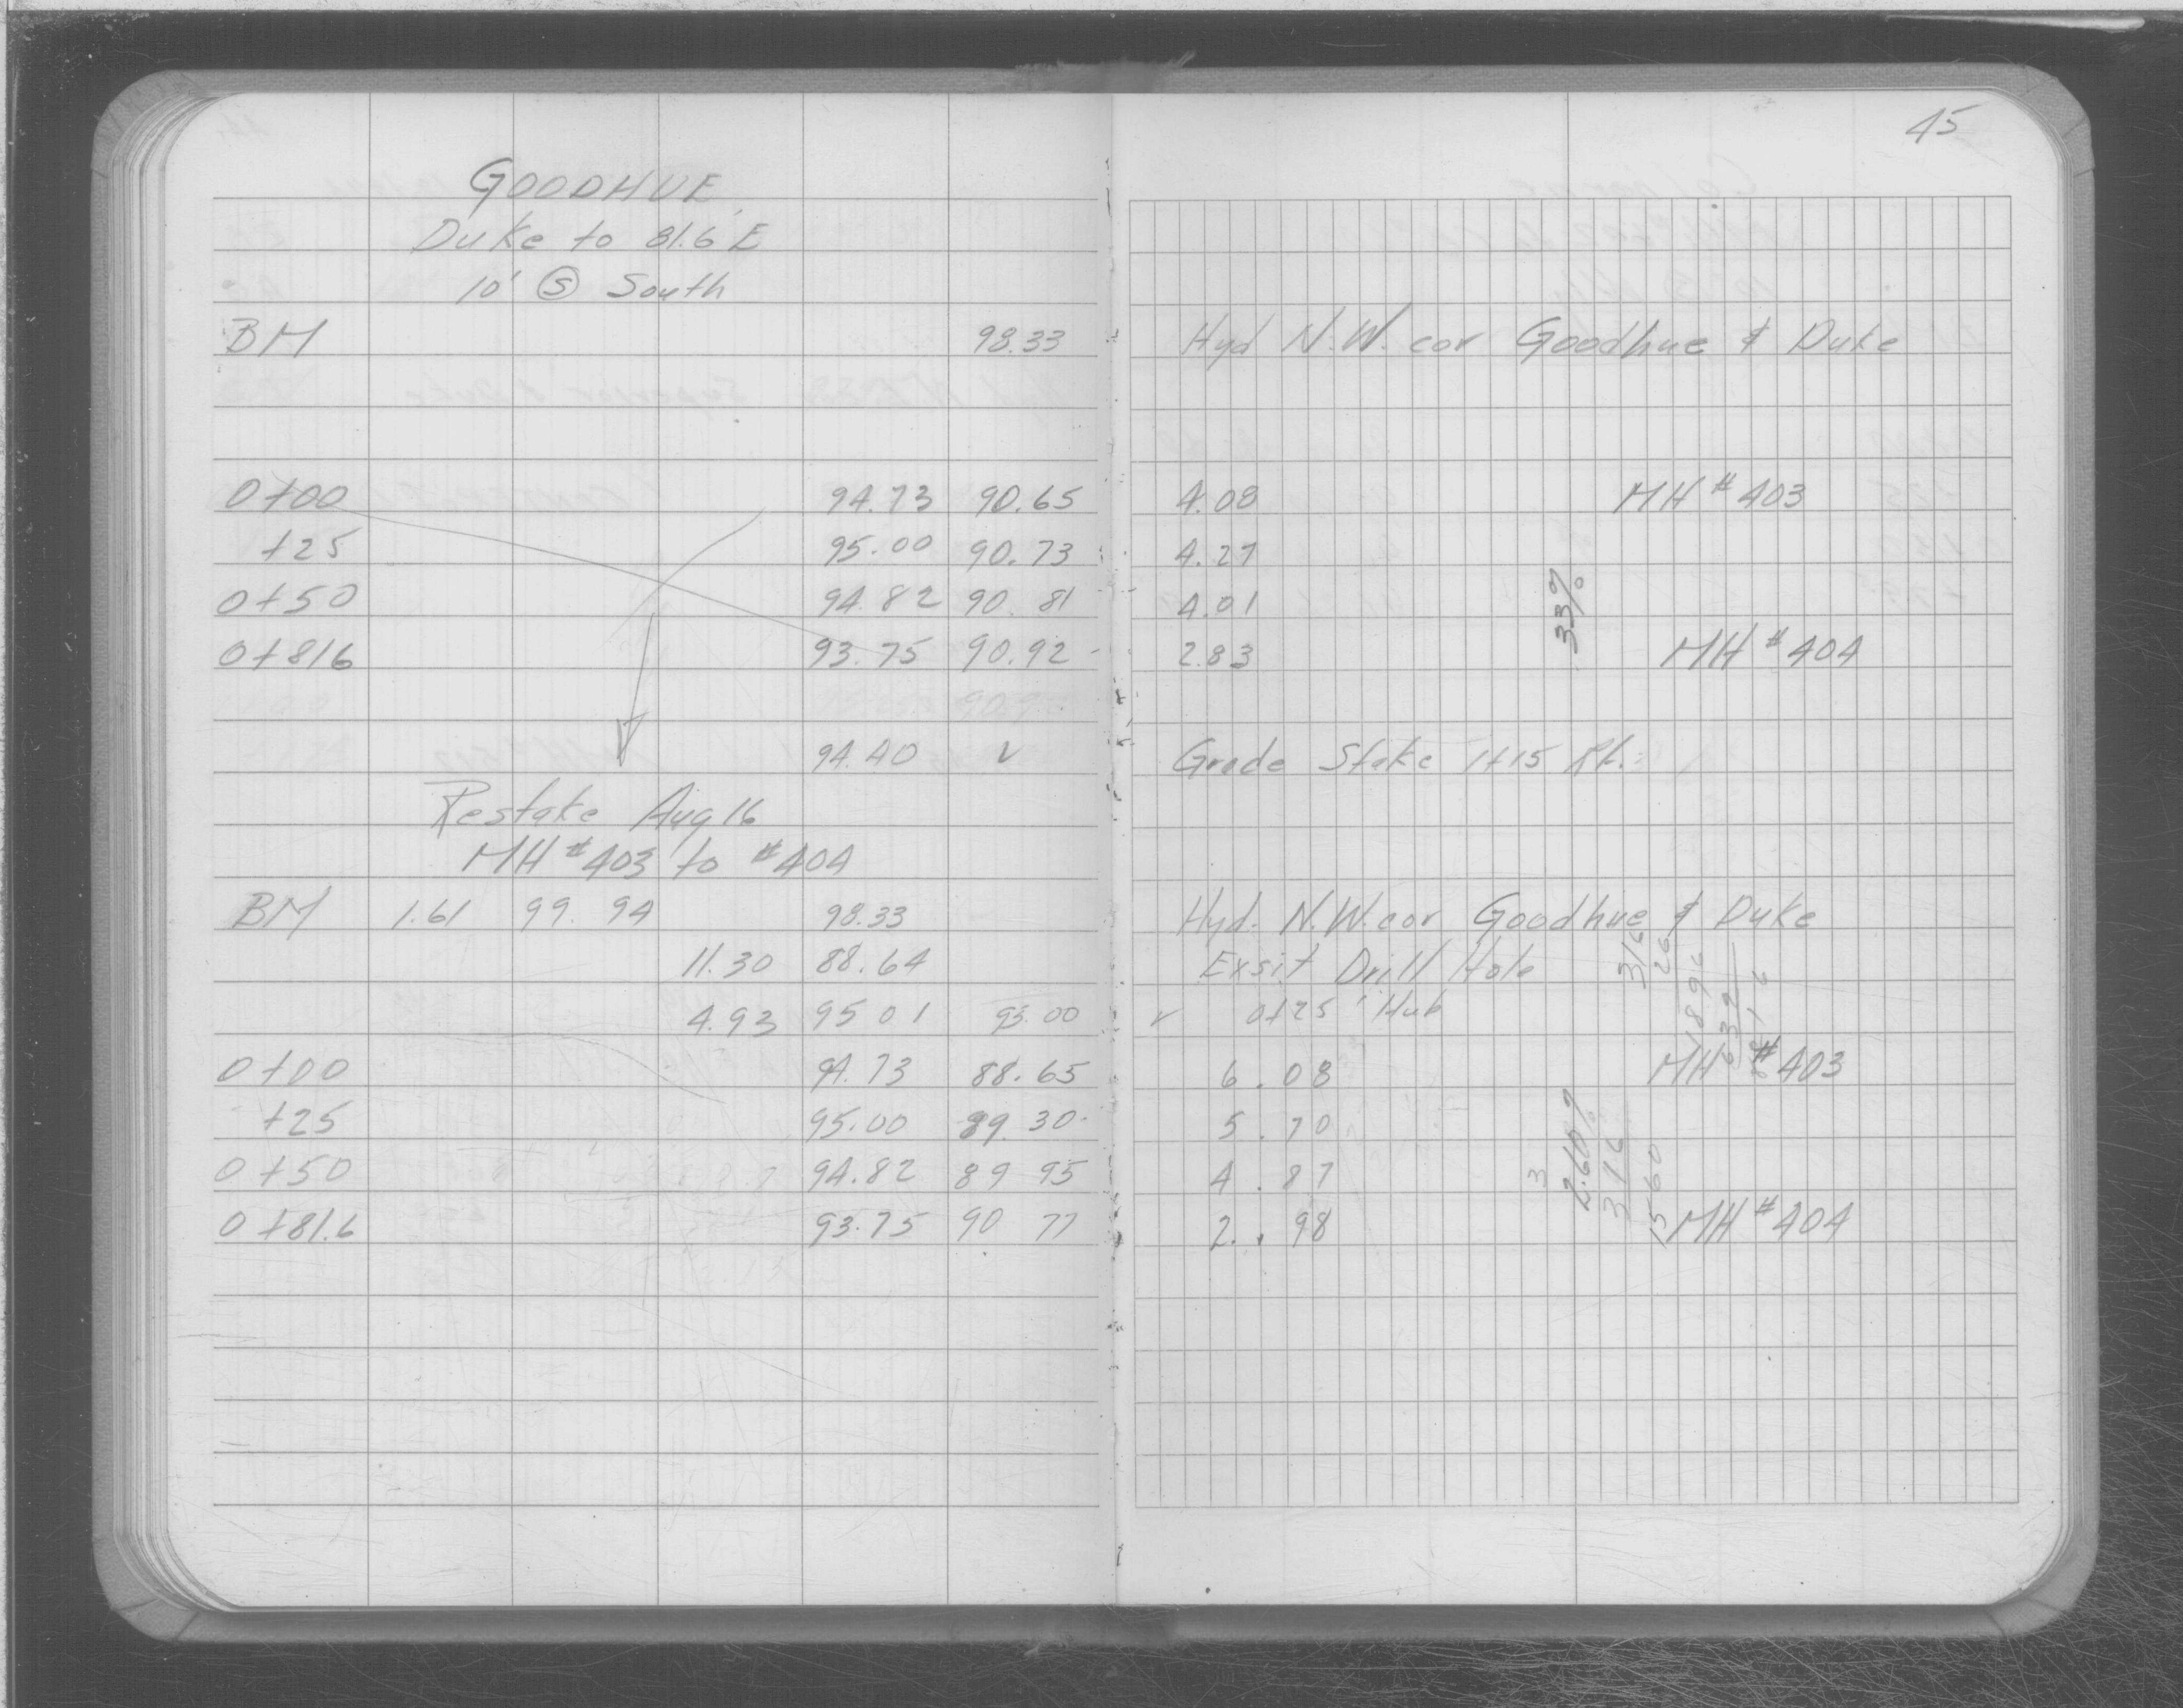 45
GOODHUE
Duke to 81.6' E
10' Ⓢ South
BM 98.33 Hyd N.W. cor Goodhue & Duke
0+00 94.73 90.65 4.08 MH #403
+25 95.00 90.73 4.27
0+50 94.82 90.81 4.01
.33%
0+816 93.75 90.92 2.83 MH #404
94.40 ✓ Grade Stake 1+15 Rt.
Restake Aug 16
MH #403 to #404
BM 1.61 99.94 98.33 Hyd. N.W. cor Goodhue & Duke
11.30 88.64 Exsit Drill Hole
4.93 95 01 95.00 ✓ 0+25' Hub
316
26
1896
632
0+00 94.73 88.65 6.08 MH #403
+25 95.00 89.30 5.70
0+50 94.82 89 95 4.87
2.60%
316
1560
0+81.6 93.75 90 77 2.98 MH #404